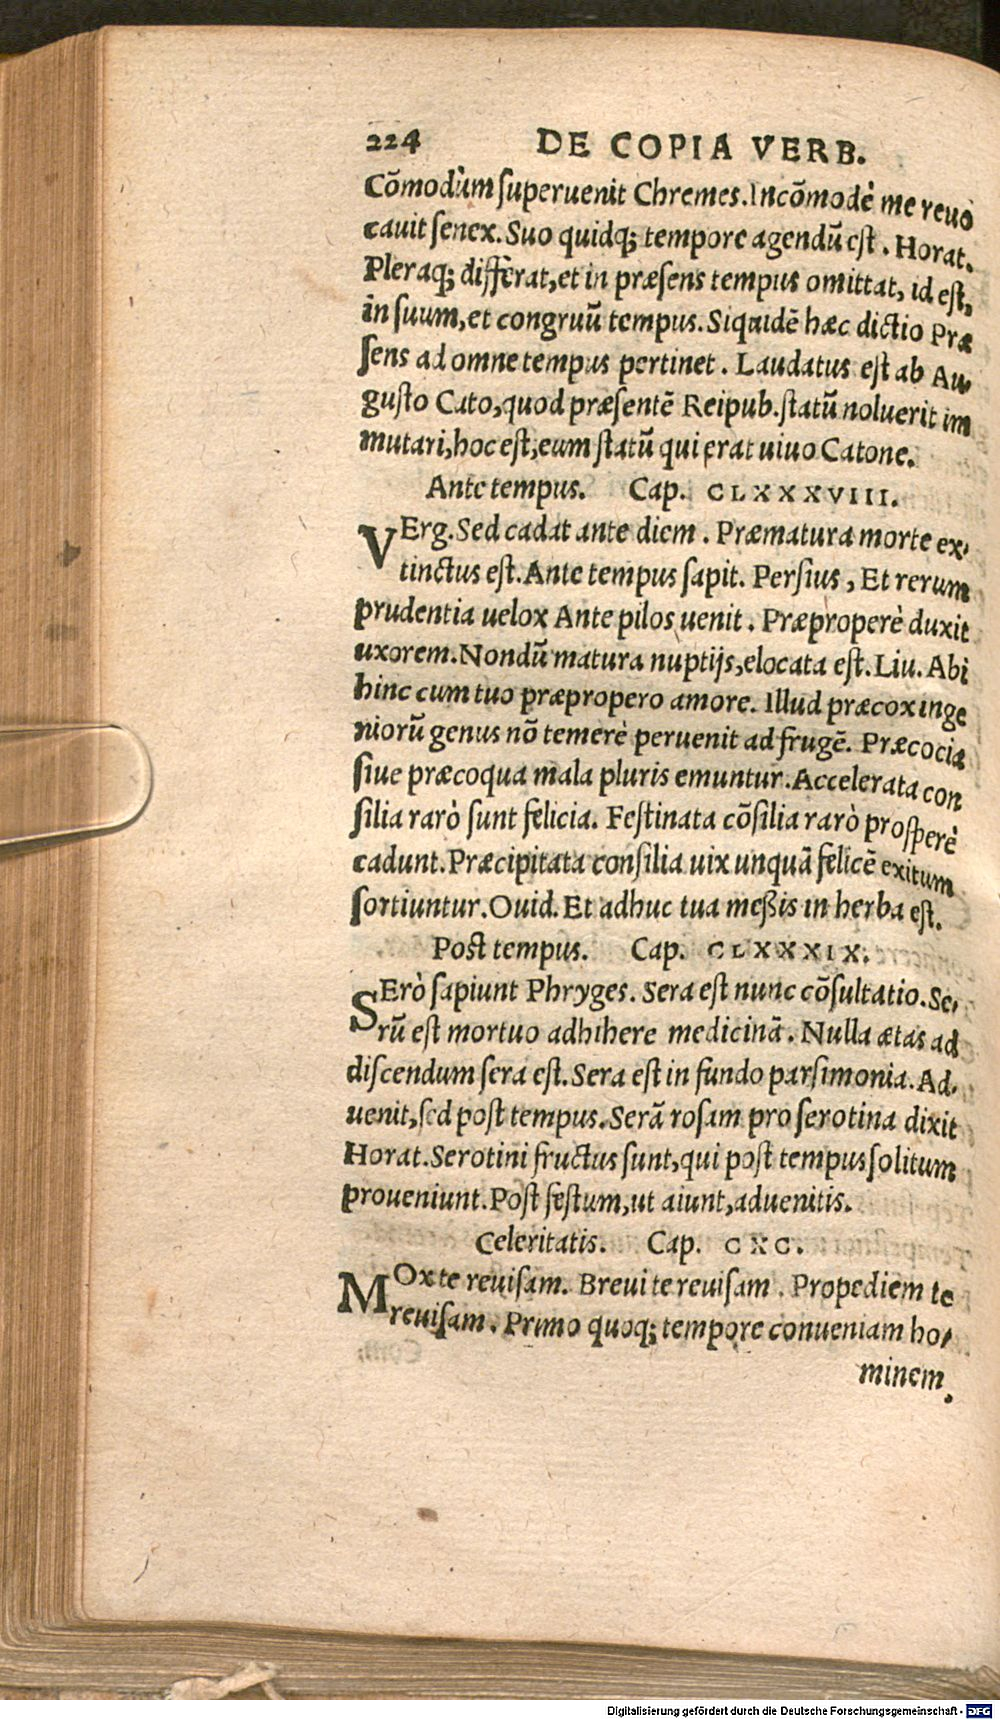 224 DE COPIA VERB.
Cõmodùm ſuperuenit Chremes. Incõmodè me reuo
cauit ſenex. Suo quidq; tempore agendũ eſt. Horat.
Pleraq; differat, et in præſens tempus omittat, id eſt,
in ſuum, et congruũ tempus. Siquidẽ hæc dictio Præ
ſens ad omne tempus pertinet. Laudatus eſt ab Au-
guſto Cato, quod præſentẽ Reipub. ſtatũ noluerit im
mutari, hoc eſt, eum ſtatũ qui erat uiuo Catone.
Ante tempus. Cap. CLXXXVIII.
VErg. Sed cadat ante diem. Præmatura morte ex-
tinctus eſt. Ante tempus ſapit. Perſius, Et rerum
prudentia uelox Ante pilos uenit. Præproperè duxit
uxorem. Nondũ matura nuptijs, elocata eſt. Liu. Abi
hinc cum tuo præpropero amore. Illud præcox inge
niorũ genus nõ temerè peruenit ad frugẽ. Præcocia
ſiue præcoqua mala pluris emuntur. Accelerata con
ſilia rarò ſunt felicia. Feſtinata cõſilia rarò proſperè
cadunt. Præcipitata conſilia uix unquã felicẽ exitum
ſortiuntur. Ouid. Et adhuc tua meßis in herba eſt.
Poſt tempus. Cap. CLXXXIX.
SErò ſapiunt Phryges. Sera eſt nunc cõſultatio. Se-
rũ eſt mortuo adhibere medicinã. Nulla ætas ad
diſcendum ſera eſt. Sera eſt in fundo parſimonia. Ad-
uenit, ſed poſt tempus. Serã roſam pro ſerotina dixit
Horat. Serotini fructus ſunt, qui poſt tempus ſolitum
proueniunt. Poſt feſtum, ut aiunt, aduenitis.
Celeritatis. Cap. CXC.
MOx te reuiſam. Breui te reuiſam. Propediem te
reuiſam. Primo quoq; tempore conueniam ho-
minem
Digitalisierung gefördert durch die Deutsche Forschungsgemeinschaft - DFG